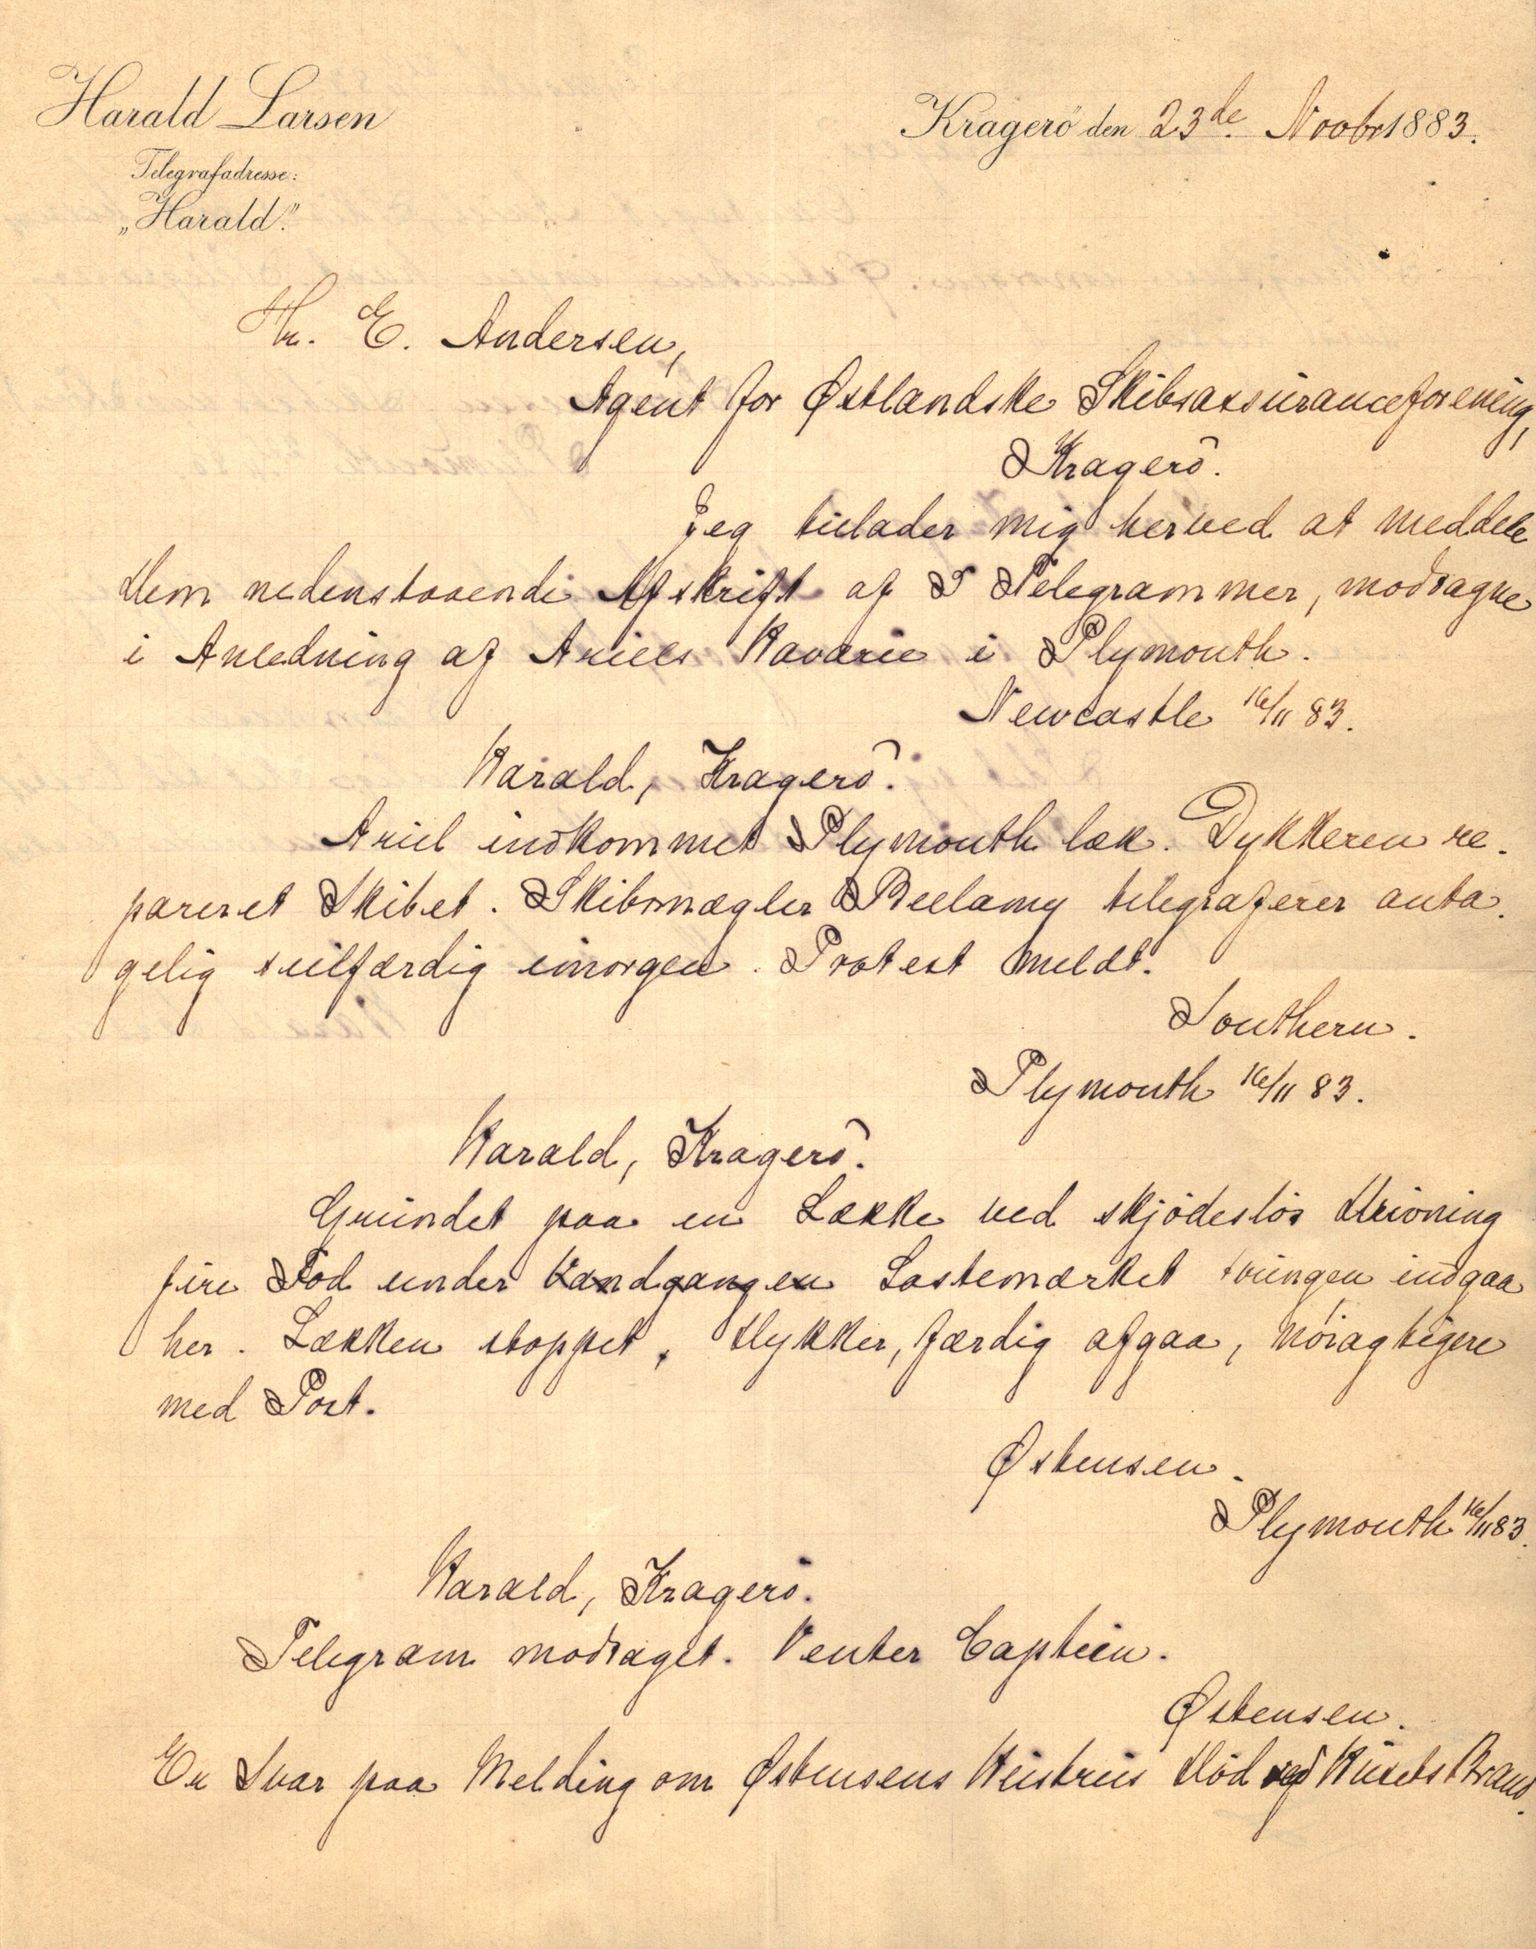 Harald Larsen
Telegrafadresse:
„Harald."
Kragerö den 23de Novbr 1883.
Hr. E. Andersen,
Agent for Østlandske Skibsassuranceforening,
Kragerö.
Jeg tillader mig herved at meddele
Dem nedenstaaende Afskrift af 5 Telegrammer, modtagne
i Anledning af Ariels Havarie i Plymouth.
Newcastle 16/11 83.
Harald, Kragerö.
Ariel indkommet Plymouth læk. Dykkeren re-
pareret Skibet. Skibsmægler Bellamy telegraferer anta-
gelig seilfærdig imorgen. Protest meldt.
Southern.
Plymouth 16/11 83.
Harald, Kragerö.
Grundet paa en Lække ved skjödeslös Drivning
fire Fod under Vandgangen Lastemærket tvungen indgaa
her. Lækken stoppet, Dykker, færdig afgaa, nöiagtigere
med Post.
Østensen.
Plymouth 16/11 83.
Harald, Kragerö.
Telegram modtaget. Venter Captein.
Østensen.
Er Svar paa Melding om Østensens Hustrus Död ved Husets Brand.